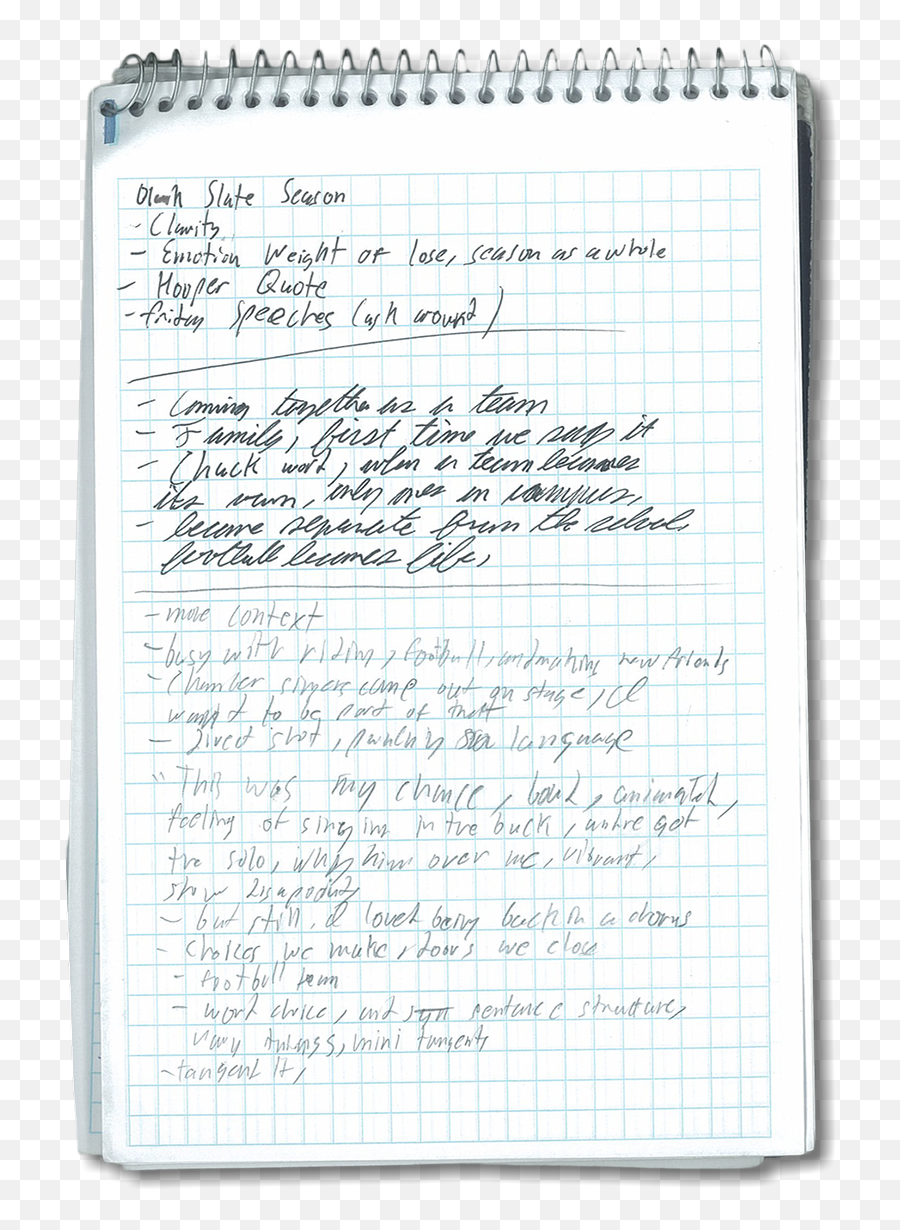 Slate Season
- Clarity
- Emotion Weight of lose, season as a whole
- Hooper Quote
- friday speeches (ask around)
- Coming together as a team
- Family, first time we say it
- Chuck word, when a team becomes
its own, only ones on campus,
- become separate from the school,
football becomes life,
- more context
- busy with riding, football, and making new friends
- Chamber singers came out on stage, I
want to be part of that
- direct shot, punchy language
"This was my chance, loud, animated,
feeling of singing in the back, 
the solo, why him over me, vibrant,
show
- but still, I loved being back in a chorus
- choices we make, doors we close
- football team
- word choice, and sentence structure,
vary things, mini tangent,
- tangent it,